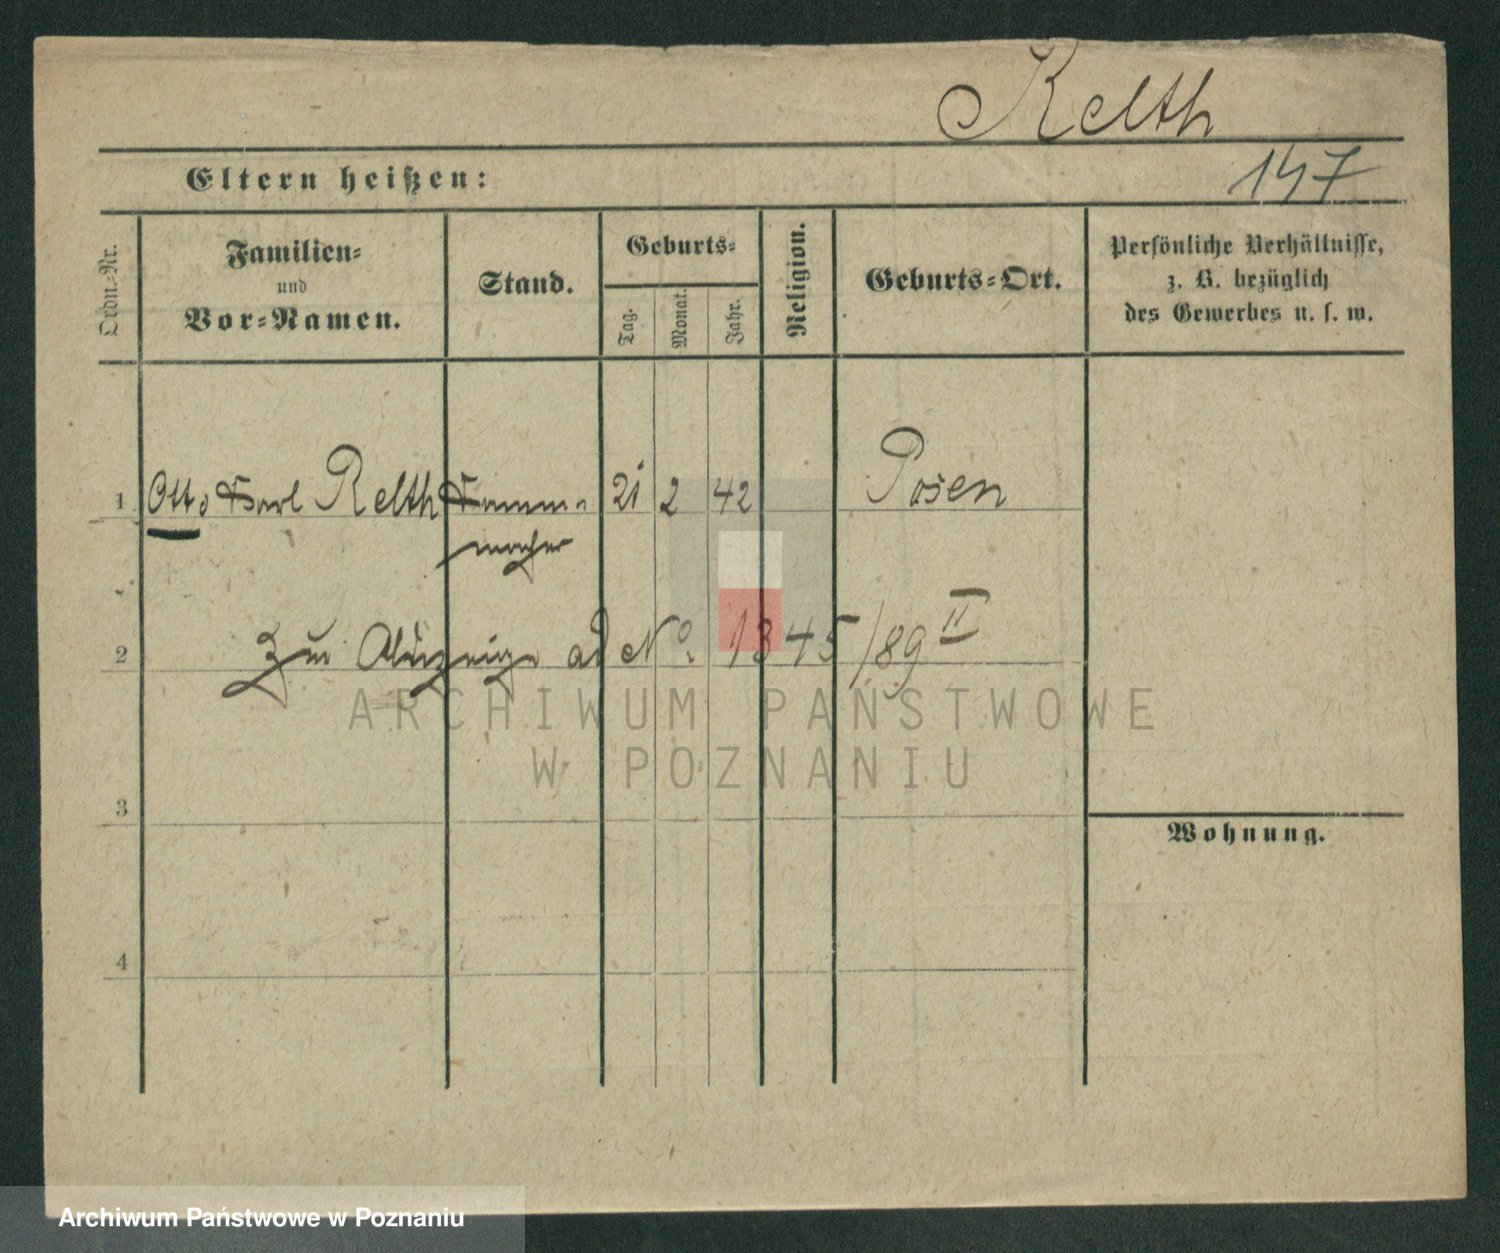 Relth
Eltern heißen:
147
Ordn.-Nr.
Familien-
und
Vor-Namen.
Stand.
Geburts-
Tag.
Monat.
Jahr.
Religion.
Geburts-Ort.
Persönliche Verhältnisse,
z. B. bezüglich
des Gewerbes u. s. w.
1 Otto Karl Relth Kamm- 21 2 42 Posen
macher
2 Zur Anzeige ad No. 1345/89 II
ARCHIWUM PAŃSTWOWE
W POZNANIU
3
Wohnung.
4
Archiwum Państwowe w Poznaniu